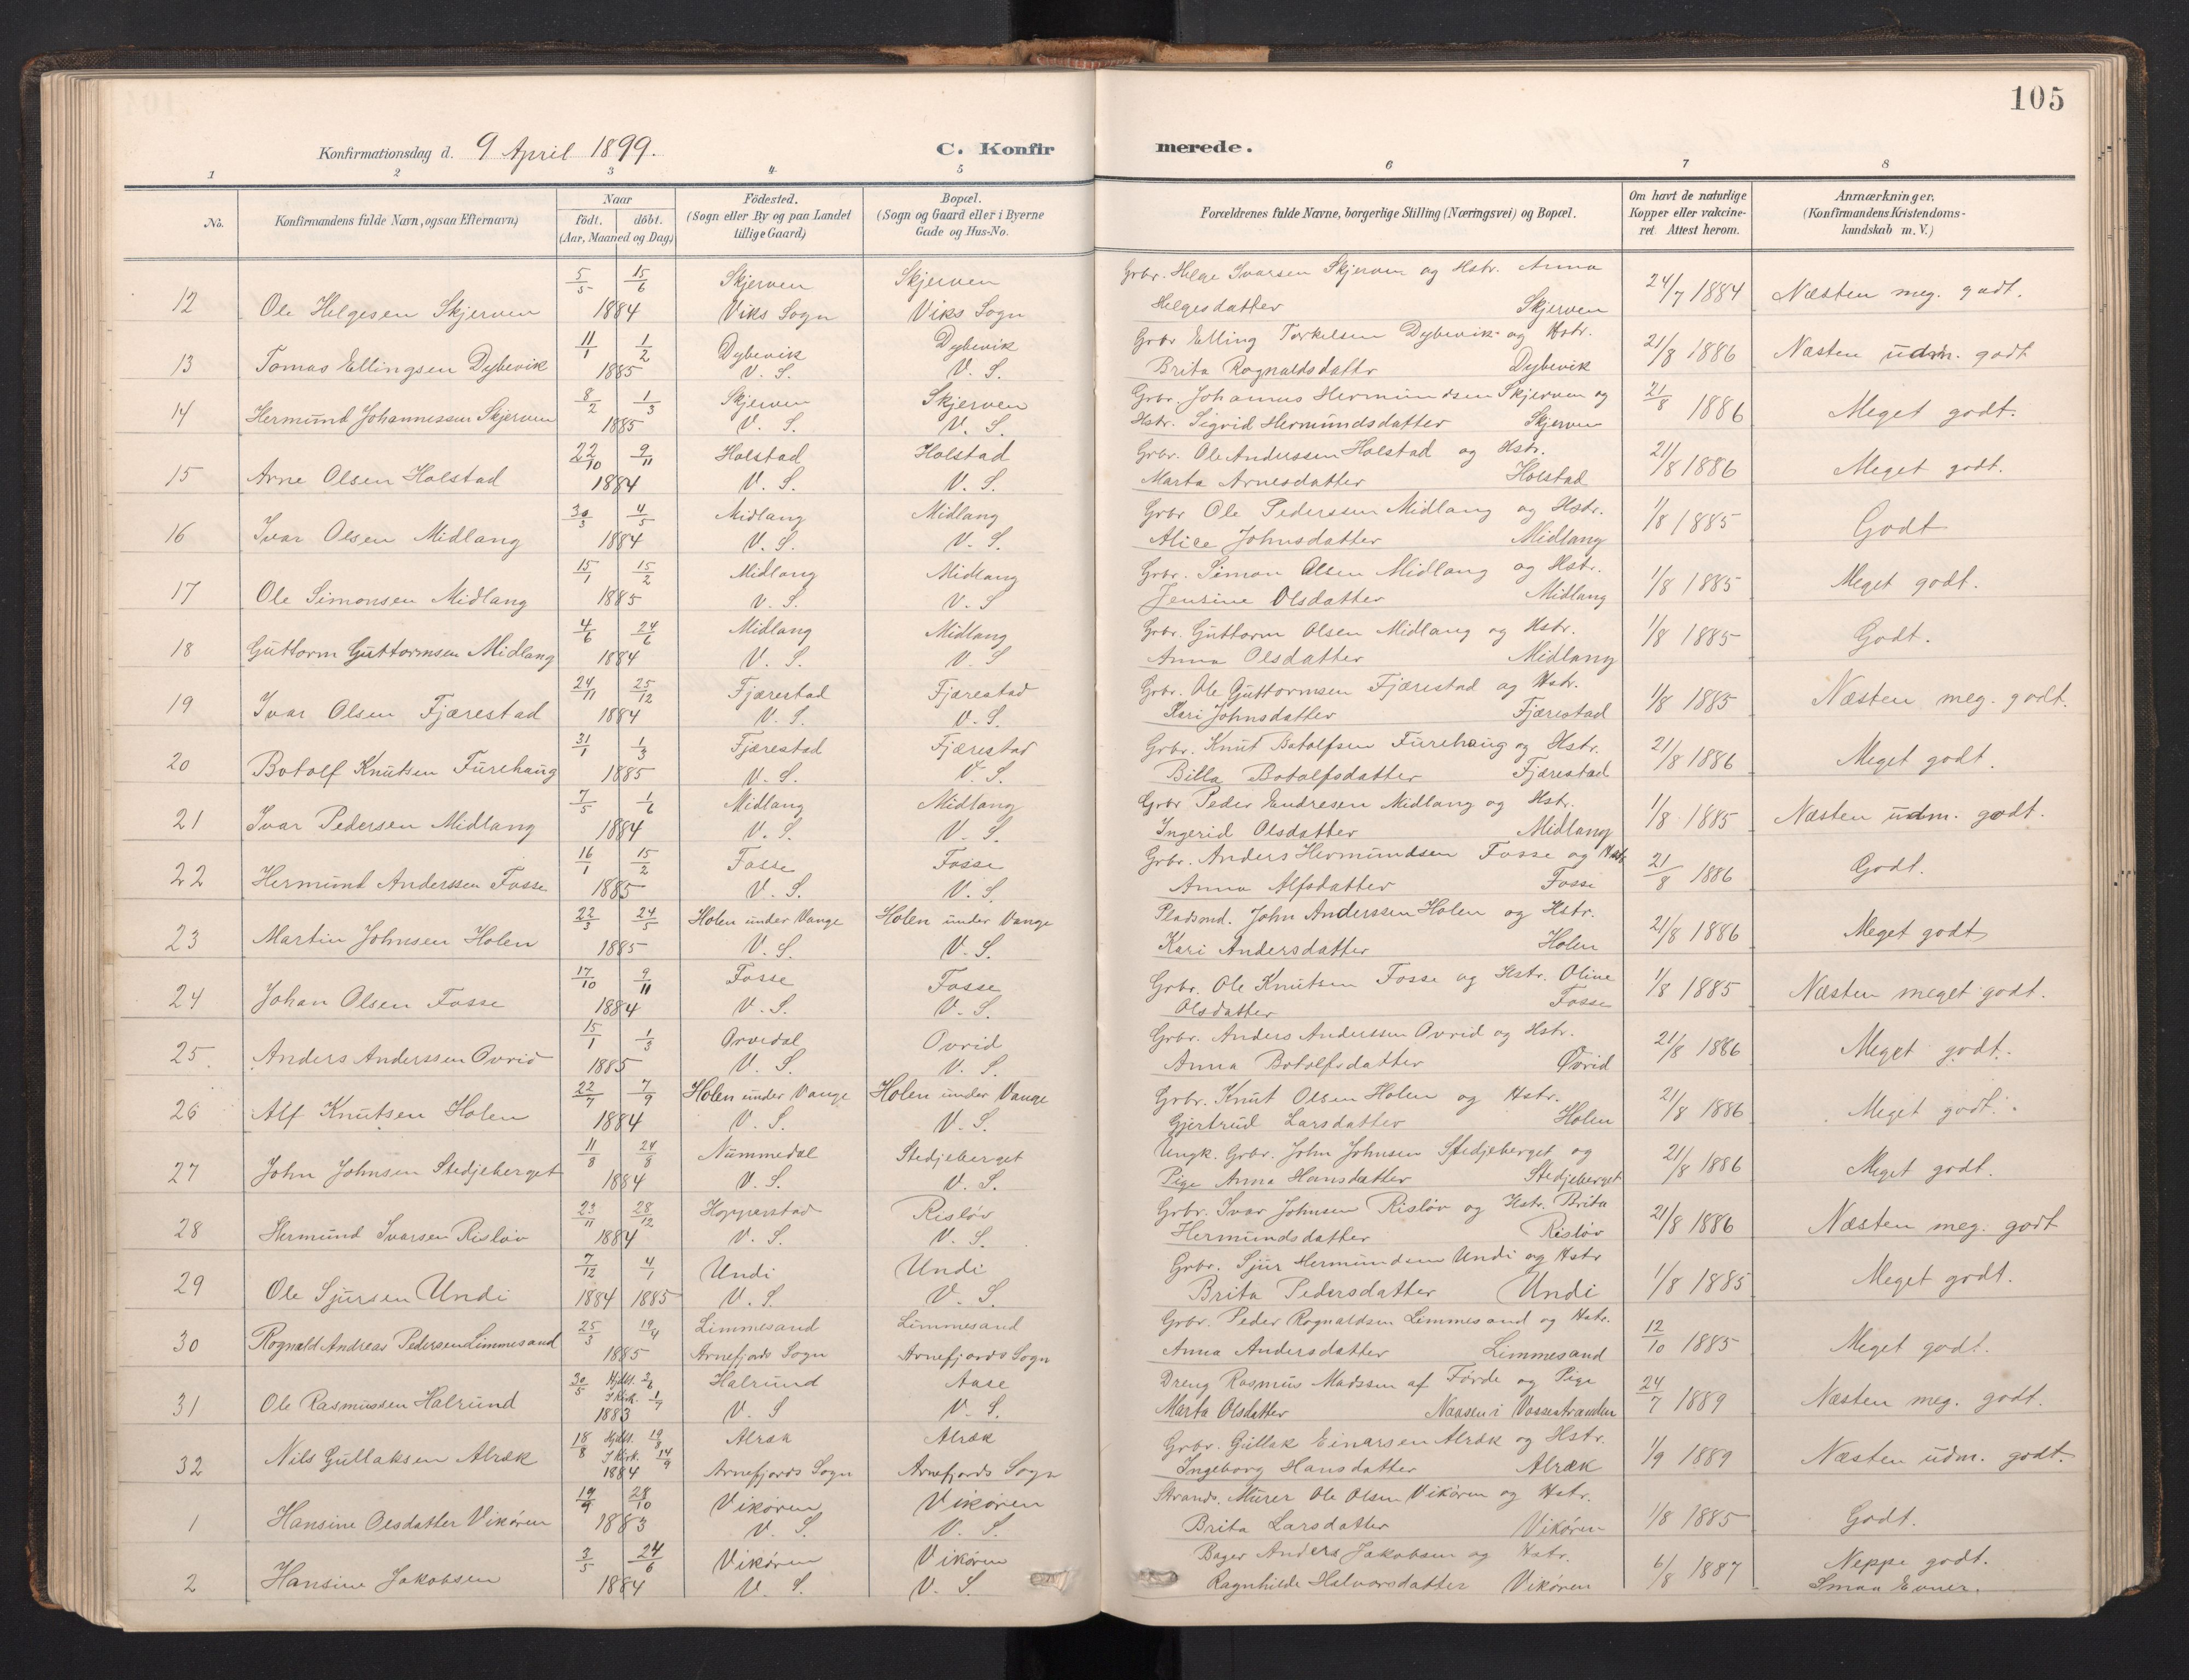 105
Konfirmationsdag d. 9 April 1899. C. Konfirmerede.
1 2 3 4 5 6 7 8
No. Konfirmandens fulde Navn, ogsaa Efternavn) Naar födt. döbt. (Aar, Maaned og Dag.) Födested. (Sogn eller By og paa Landet tillige Gaard) Bopæl. (Sogn og Gaard eller i Byerne Gade og Hus-No. Forældrenes fulde Navne, borgerlige Stilling (Næringsvei) og Bopæl. Om havt de naturlige Kopper eller vakcineret Attest herom. Anmærkninger. (Konfirmandens Kristendomskundskab m. V.)
5/5 15/6 Skjerven Skjerven Grbr. Helge Ivarsen Skjerven og Hstr. Anna
12 Ole Helgesen Skjerven 1884 Viks Sogn Viks Sogn Helgesdatter Skjerven 24/7 1884 Næsten meg. godt.
11/1 1/2 Dybevik Dybevik Grbr Elling Torkelsen Dybevik og Hstr.
13 Tomas Ellingsen Dybevik 1885 V. S. V. S. Brita Rognaldsdattr Dybevik 21/8 1886 Næsten udm. godt
8/2 1/3 Skjerven Skjerven Grbr. Johannes Hermundsen Skjerven og
14 Hermund Johannessen Skjerven 1885 V. S. V. S. Hstr. Sigrid Hermundsdatter Skjerven 21/8 1886 Meget godt.
22/10 9/11 Holstad Holstad Grbr. Ole Anderssen Holstad og Hstr.
15 Arne Olsen Holstad 1884 V. S. V. S. Marta Arnesdatter Holstad 21/8 1886 Meget godt.
30/3 4/5 Midlang Midlang Grbr Ole Pederssen Midlang og Hstr.
16 Ivar Olsen Midlang 1884 V. S. V. S. Alice Johnsdatter Midlang 1/8 1885 Godt
15/1 15/2 Midlang Midlang Grbr. Simon Olsen Midlang og Hstr.
17 Ole Simonsen Midlang 1885 V. S. V. S Jensine Olsdatter Midlang 1/8 1885 Meget godt.
4/6 24/6 Midlang Midlang Grbr. Guttorm Olsen Midlang og Hstr.
18 Guttorm Guttormsen Midlang 1884 V. S. V. S Anna Olsdatter Midlang 1/8 1885 Godt.
24/11 25/12 Fjærestad Fjærestad Grbr. Ole Guttormsen Fjærestad og Hstr.
19 Ivar Olsen Fjærestad 1884 V. S. V. S. Kari Johnsdatter Fjærestad 1/8 1885 Næsten meg. godt.
31/1 1/3 Fjærestad Fjærestad Grbr. Knut Botolfsen Furehaug og Hstr.
20 Botolf Knutsen Furehaug 1885 V. S. V. S. Billa Botolfsdatter Fjærestad 21/8 1886 Meget godt.
7/5 1/6 Midlang Midlang Grbr Peder Endresen Midlang og Hstr.
21 Ivar Pedersen Midlang 1884 V. S. V. S. Ingerid Olsdatter Midlang 1/8 1885 Næsten udm. godt.
16/1 15/2 Fosse Fosse Grbr. Anders Hermundsen Fosse og Hstr
22 Hermund Anderssen Fosse 1885 V. S. V. S. Anna Alfsdatter Fosse 21/8 1886 Godt.
22/3 24/5 Holen under Vange Holen under Vange Pladsmd. John Anderssen Holen og Hstr.
23 Martin Johnsen Holen 1885 V. S. V. S. Kari Andersdatter Holen 21/8 1886 Meget godt
17/10 9/11 Fosse Fosse Grbr. Ole Knutsen Fosse og Hstr. Oline
24 Johan Olsen Fosse 1884 V. S. V. S. Olsdatter Fosse 1/8 1885 Næsten meget godt.
15/1 1/3 Orvedal Ovrid Grbr. Anders Anderssen Ovrid og Hstr.
25 Anders Anderssen Ovrid 1885 V. S. V. S. Anna Botolfsdatter Øvrid 21/8 1886 Meget godt.
22/7 7/9 Holen under Vange Holen under Vange Grbr. Knut Olsen Holen og Hstr.
26 Alf Knutsen Holen 1884 V. S. V. S. Gjertrud Larsdatter Holen 21/8 1886 Meget godt.
11/8 24/8 Nummedal Stedjeberget Ungk. Grbr. John Johnsen Stedjeberget og
27 John Johnsen Stedjeberget 1884 V. S. V. S. Pige Anna Hansdatter Stedjeberget 21/8 1886 Meget godt.
23/11 28/12 Hopperstad Risløv Grbr. Ivar Johnsen Risløv og Hstr. Brita
28 Hermund Ivarsen Risløv 1884 V. S. V. S. Hermundsdatter Risløv 21/8 1886 Næsten meg. godt
7/12 4/1 Undi Undi Grbr. Sjur Hermundsen Undi og Hstr
29 Ole Sjursen Undi 1884 1885 V. S. V. S. Brita Pedersdatter Undi 1/8 1885 Meget godt.
25/3 19/4 Limmesand Limmesand Grbr. Peder Rognaldsen Limmesand og Hstr.
30 Rognald Andreas Pedersen Limmesand 1885 Arnefjords Sogn Arnefjords Sogn Anna Andersdatter Limmesand 12/10 1885 Meget godt.
30/5 Hjdbt. 2/6 I Kirk. 1/7 Halrund Aase Dreng Rasmus Madssen af Førde og Pige
31 Ole Rasmussen Halrund 1883 V. S V. S. Marta Olsdatter Naasen i Vossestranden 24/7 1889 Næsten meg. godt.
18/8 Hjdbt. 19/8 I Kirk. 14/9 Alræk Alræk Grbr. Gullak Einarsen Alræk og Hstr.
32 Nils Gullaksen Alræk 1884 Arnefjords Sogn Arnefjords Sogn Ingeborg Hansdatter Alræk 1/9 1889 Næsten udm. godt.
19/9 28/10 Vikøren Vikøren Strands. Murer Ole Olsen Vikøren og Hstr.
1 Hansine Olsdatter Vikøren 1883 V. S. V. S. Brita Larsdatter Vikøren 1/8 1885 Godt.
3/5 24/6 Vikøren Vikøren Bager Anders Jakobsen og Hstr.
2 Hansine Jakobsen 1884 V. S. V. S. Ragnhilde Halvorsdatter Vikøren 6/8 1887 Neppe godt. Smaa Evner.